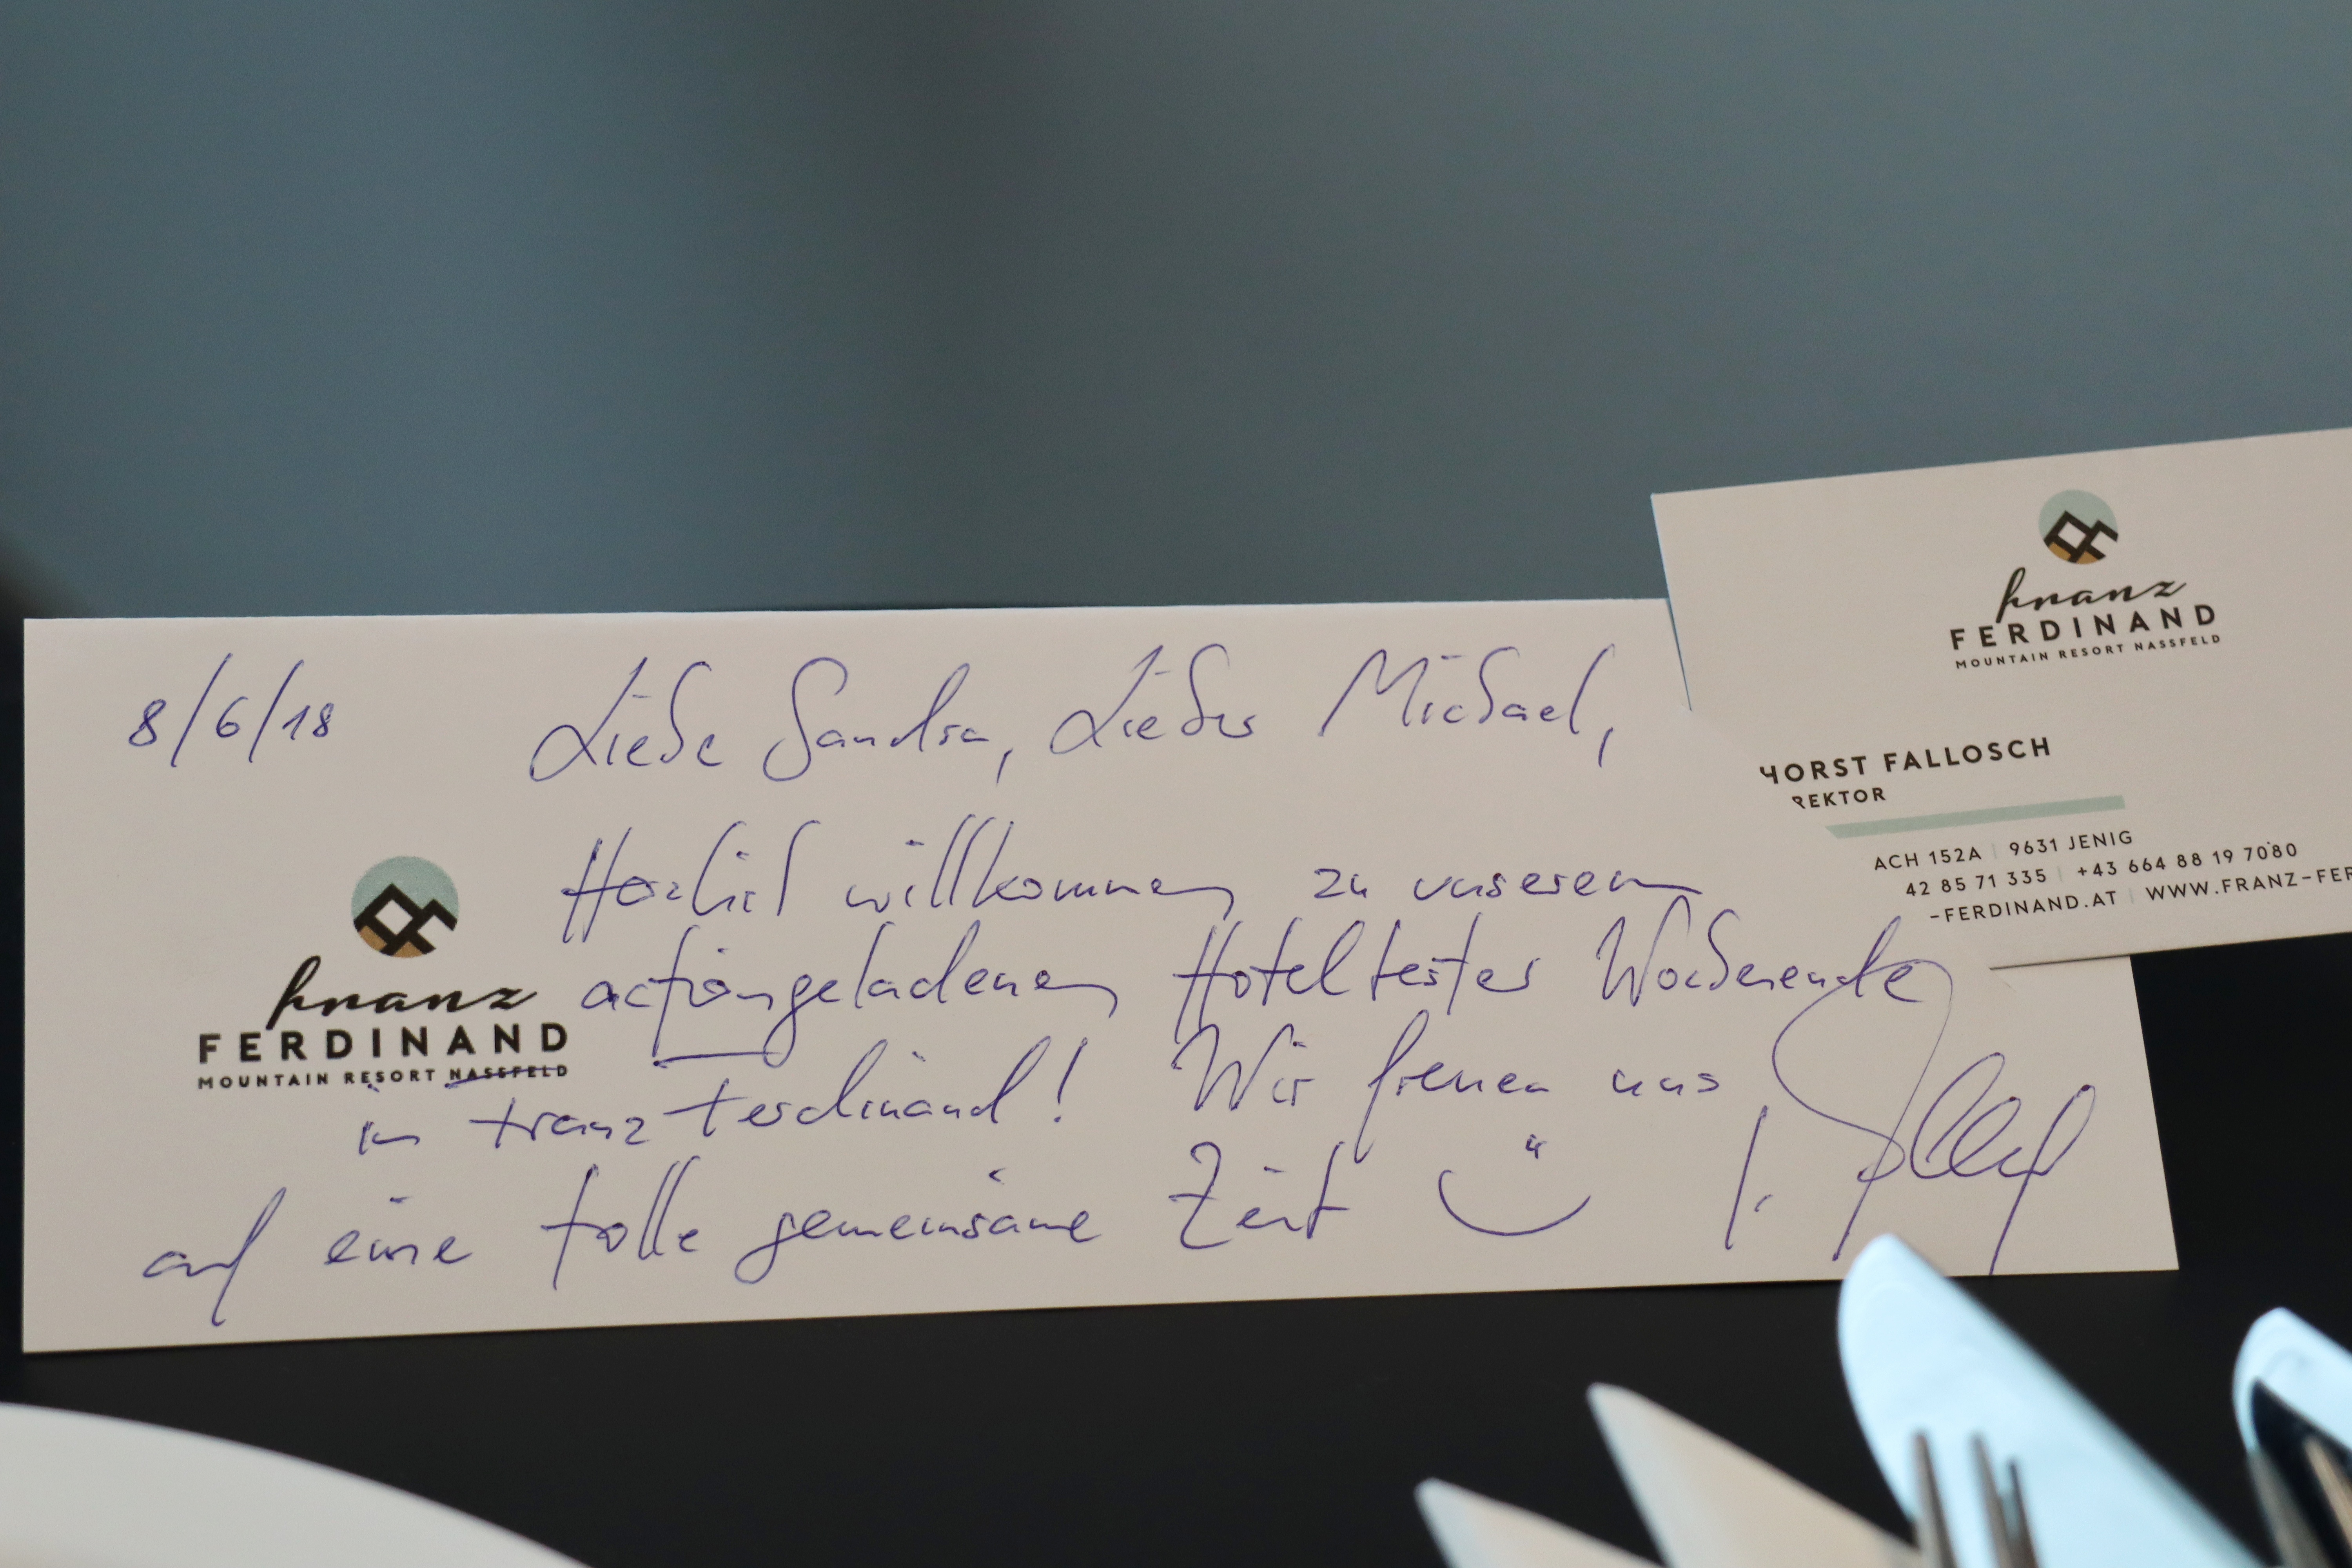 8/6/18
Liebe Sandra, Lieber Michael,
Herzlich willkommen zu unserem
actiongeladenen Hoteltester Wochenende
in Franz Ferdinand! Wir freuen uns
auf eine tolle gemeinsame Zeit
franz
FERDINAND
MOUNTAIN RESORT NASSFELD
franz
FERDINAND
MOUNTAIN RESORT NASSFELD
HORST FALLOSCH
REKTOR
ACH 152A | 9631 JENIG
42 85 71 335 | +43 664 88 19 7080
-FERDINAND.AT | WWW.FRANZ-FER